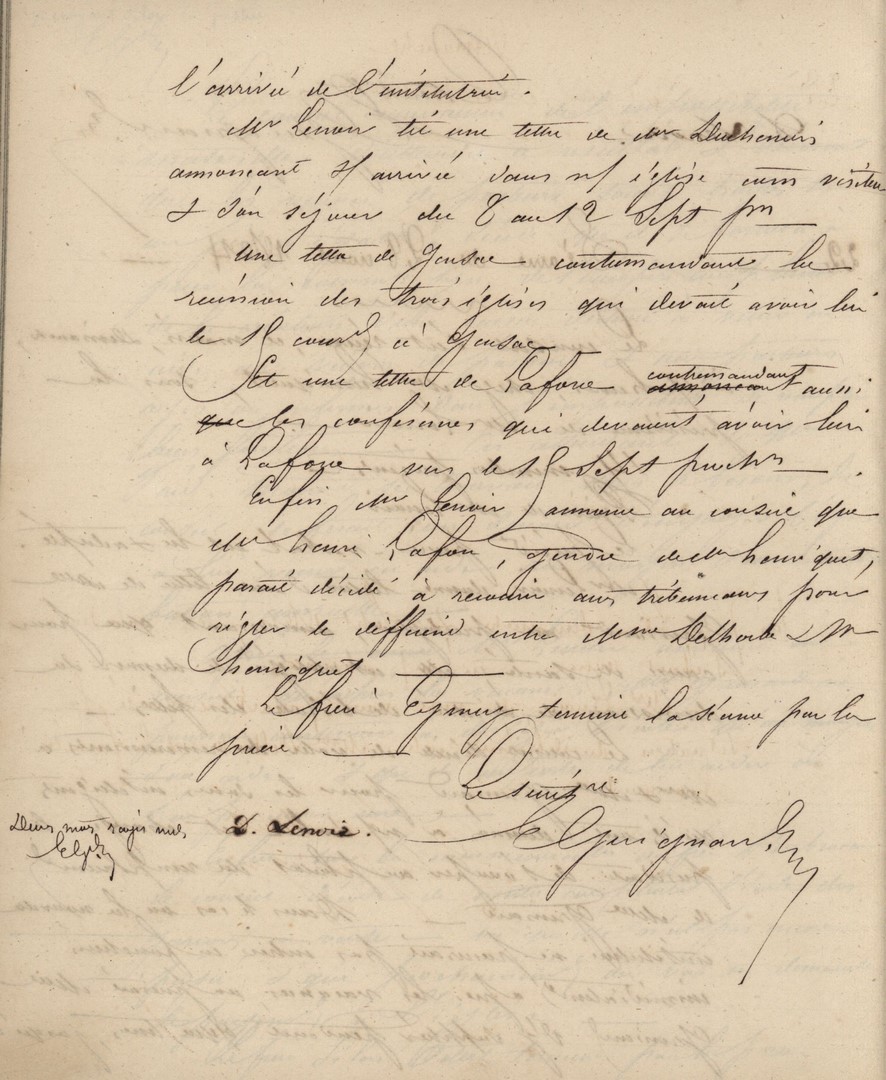 l'arrivée de l'institutrice.
Mr Lenoir lit une lettre de Mr Duchemin
annoncant arrivée dans église comme visiteur
& d'un séjour du 8 au 12 Sept pn
Une lettre de Gensac contremandant la
reunion des trois églises qui devait avoir lieu
le 15 courd à Gensac
Et une lettre de Laforce contremandant annoncant aussi
que les conférences qui devaient avoir lieu
à Laforce vers le 15 Sept prochn
Enfin Mr Lenoir annonce au conseil que
Mr henri Lafon, gendre de Mr heniquet,
parait décidé à recourir aux tribunaux pour
régler le différend entre Mme Delhorbe & Mr
heniquet
Le frère termine la séance par la
prière
Le secrétre
Deux mots rayés nuls D. Lenoir.